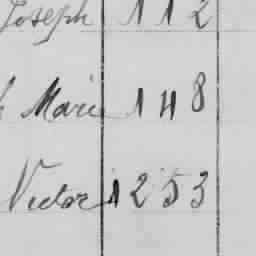 Joseph 112
Marie 148
Victor 1253